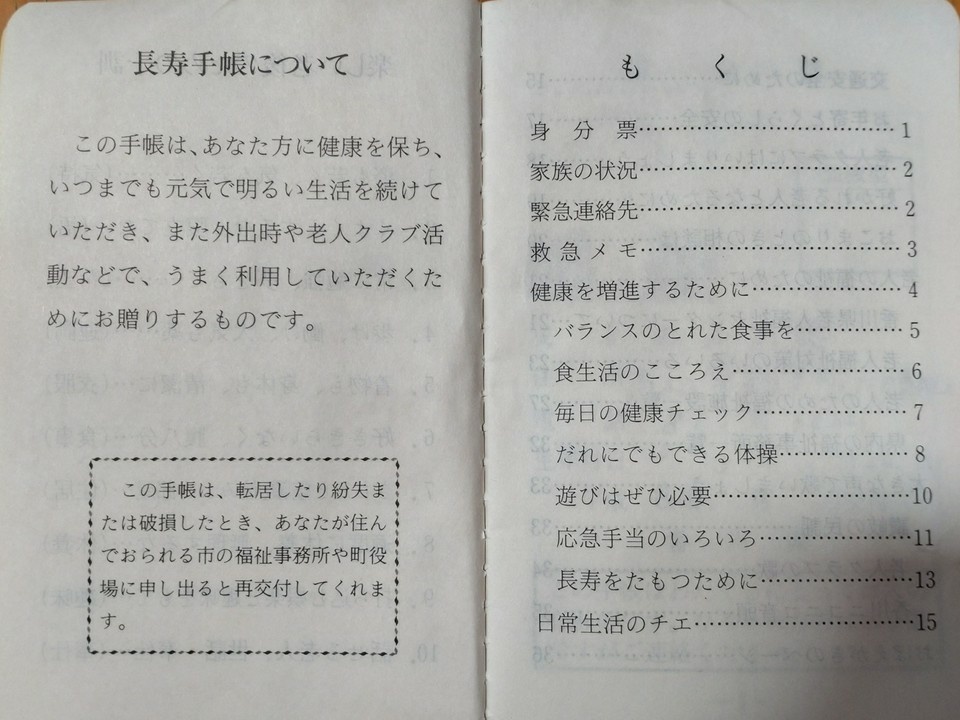 長寿手帳について
この手帳は、あなた方に健康を保ち、
いつまでも元気で明るい生活を続けて
いただき、また外出時や老人クラブ活
動などで、うまく利用していただくた
めにお贈りするものです。
この手帳は、転居したり紛失ま
たは破損したとき、あなたが住ん
でおられる市の福祉事務所や町役
場に申し出ると再交付してくれま
す。
もくじ
身分票…………………………1
家族の状況…………………………2
緊急連絡先…………………………2
救急メモ…………………………3
健康を増進するために……………4
バランスのとれた食事を…………5
食生活のこころえ…………………6
毎日の健康チェック………………7
だれにでもできる体操……………8
遊びはぜひ必要……………………10
応急手当のいろいろ………………11
長寿をたもつために………………13
日常生活のチエ……………………15